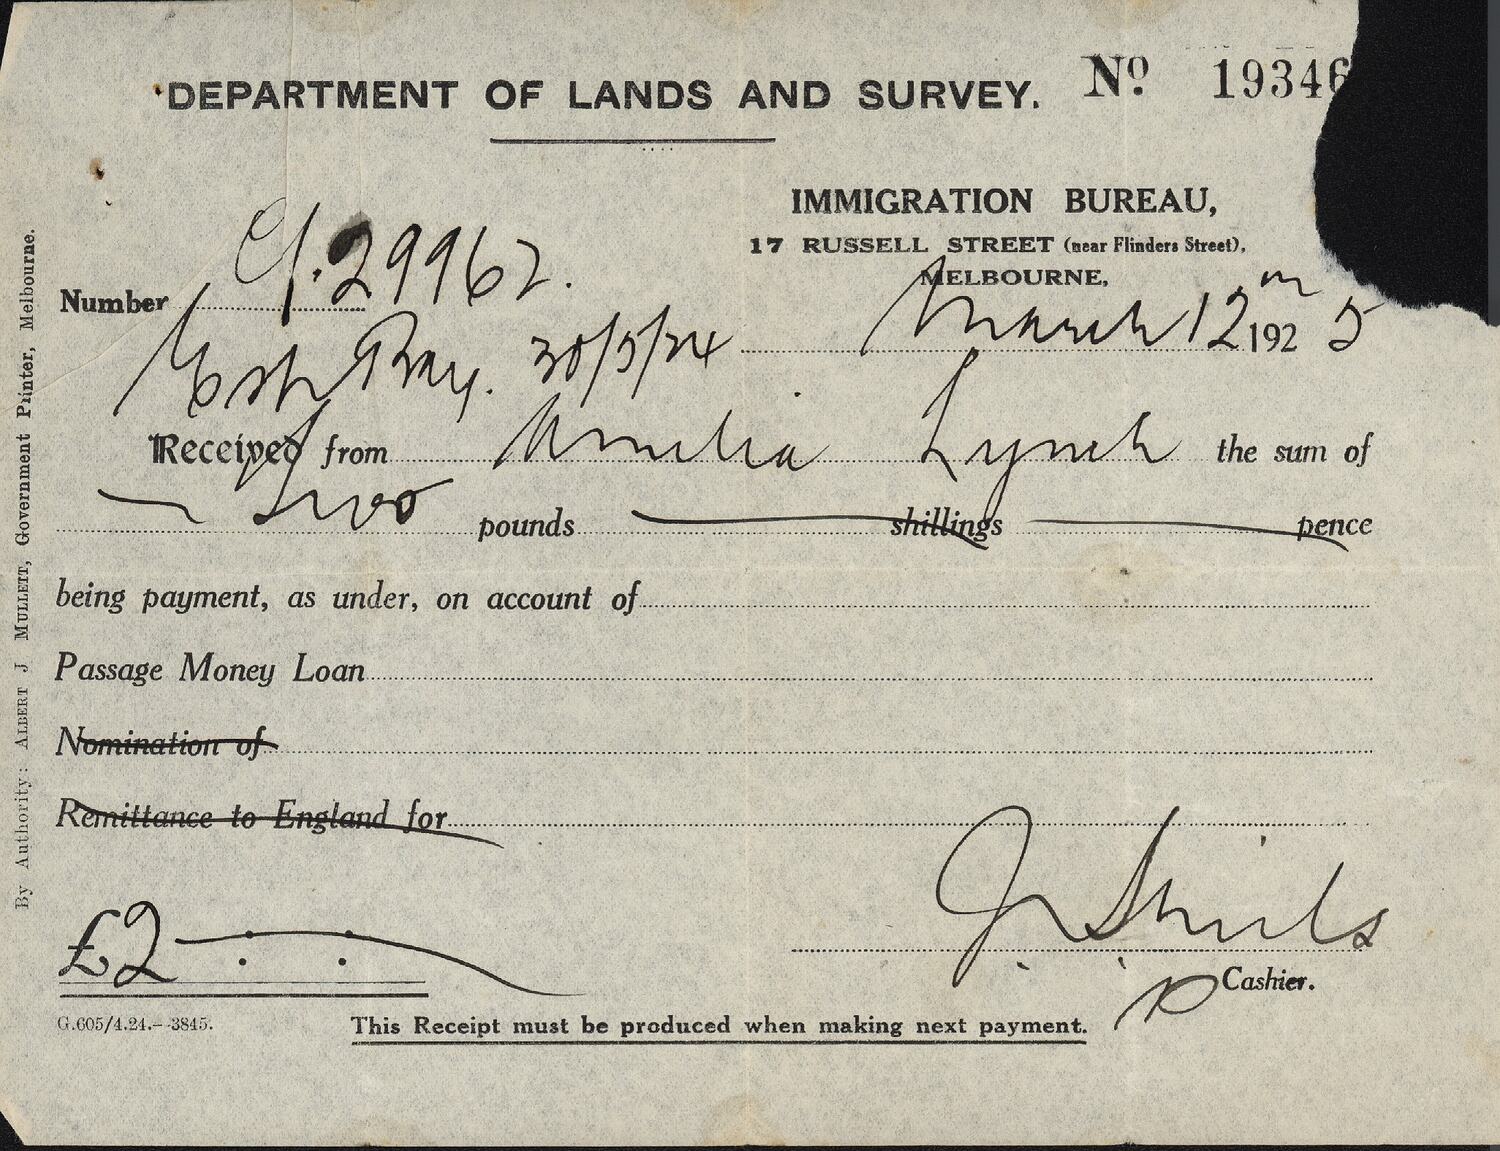 DEPARTMENT OF LANDS AND SURVEY. No. 19346
IMMIGRATION BUREAU,
17 RUSSELL STREET (near Flinders Street),
MELBOURNE,
Number 29962.
March 12th 1925
Bay. 30/5/24
Received from Amelia Lynch the sum of
Two pounds shillings pence
being payment, as under, on account of
Passage Money Loan
Nomination of
Remittance to England for
£2
J. Shiels
Cashier.
G.605/4.24.—3845.
This Receipt must be produced when making next payment.
By Authority: ALBERT J MULLETT, Government Printer, Melbourne.